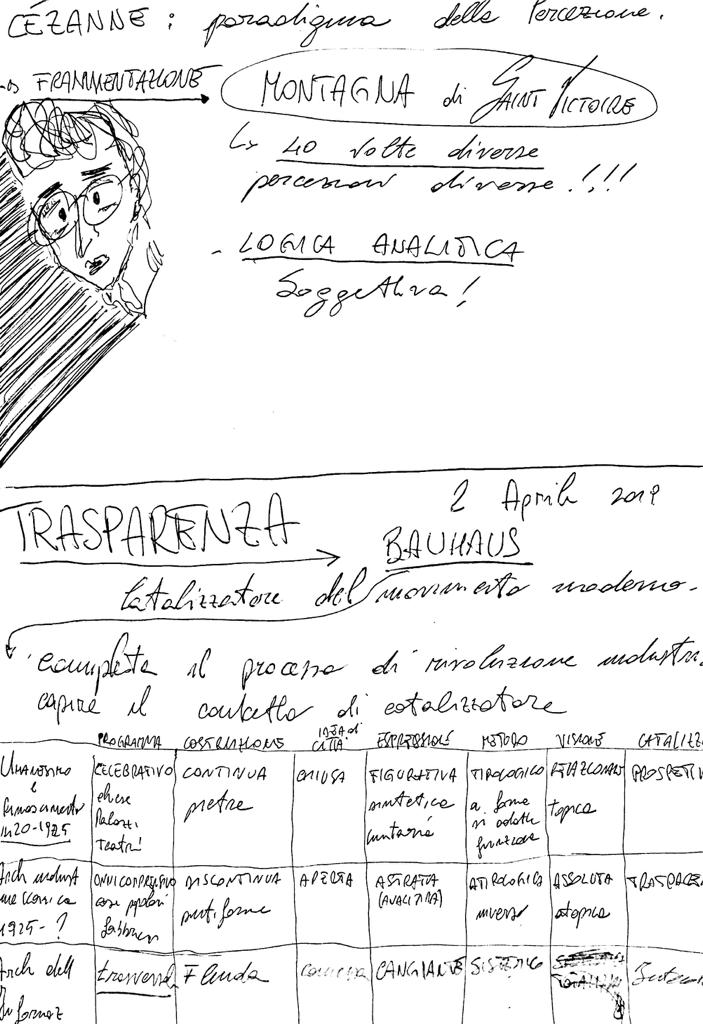 CÉZANNE : paradigma della Percezione.
FRAMMENTAZIONE
MONTAGNA di SAINT VICTOIRE
40 volte diverse
percezioni diverse !!!!
- LOGICA ANALITICA
Soggettiva !
2 Aprile 2019
TRASPARENZA
BAUHAUS
catalizzatore del movimento moderno.
completa il processo di rivoluzione industri
capire il concetto di catalizzatore
PROGRAMMA COSTRUZIONE IDEA di CITTÀ ESPRESSIONE METODO VISIONE CATALIZZ
Umanesimo e Rinascimento 1420-1925
CELEBRATIVO chiese Palazzi Teatri
CONTINUA pietre
CHIUSA
FIGURATIVA sintetica unitaria
TIPOLOGICO a forma funzione
topica
PROSPETTIV
Arch indust meccanica 1925-?
ONNICOMPRENSIVO case popolari fabbriche
DISCONTINUA puntiforme
APERTA
ASTRATTA (ANALITICA)
ATIPOLOGICO inverso
ASSOLUTA atopica
TRASPAREN
Arch dell' Informaz
trasversal
Fluida
CANGIANTE
SISTEMICO